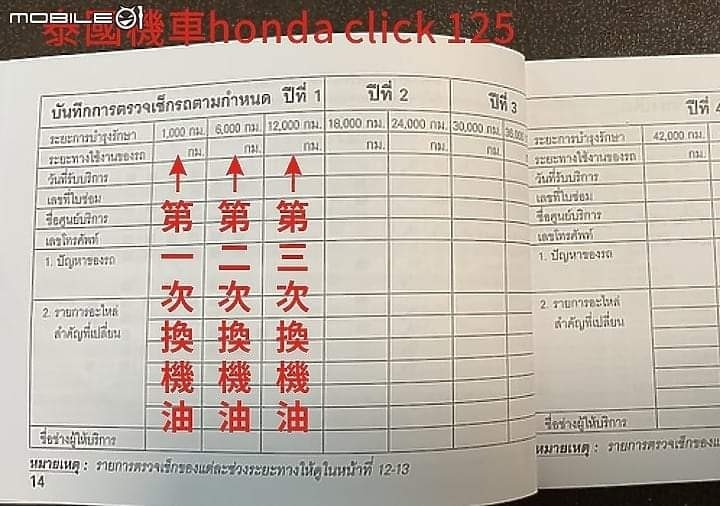 MOBILE01
泰國機車honda click 125
บันทึกการตรวจเช็กรถตามกำหนด ปีที่ 1 ปีที่ 2 ปีที่ 3
ระยะการบำรุงรักษา 1,000 กม. 6,000 กม. 12,000 กม. 18,000 กม. 24,000 กม. 30,000 กม. 36,000
ระยะทางใช้งานของรถ กม. กม. กม. กม. กม. กม.
วันที่รับบริการ
เลขที่ใบซ่อม
ชื่อศูนย์บริการ
เลขโทรศัพท์
1. ปัญหาของรถ
2. รายการอะไหล่
สำคัญที่เปลี่ยน
ชื่อช่างผู้ให้บริการ
หมายเหตุ : รายการตรวจเช็กของแต่ละช่วงระยะทางให้ดูในหน้าที่ 12-13
14
第一次換機油
第二次換機油
第三次換機油
ปีที่ 4
ระยะการบำรุงรักษา 42,000 กม.
ระยะทางใช้งานของรถ กม.
วันที่รับบริการ
เลขที่ใบซ่อม
ชื่อศูนย์บริการ
เลขโทรศัพท์
1. ปัญหาของรถ
2. รายการอะไหล่
สำคัญที่เปลี่ยน
ชื่อช่างผู้ให้บริการ
หมายเหตุ : รายการตรวจเช็กของแต่ละช่วงระยะ